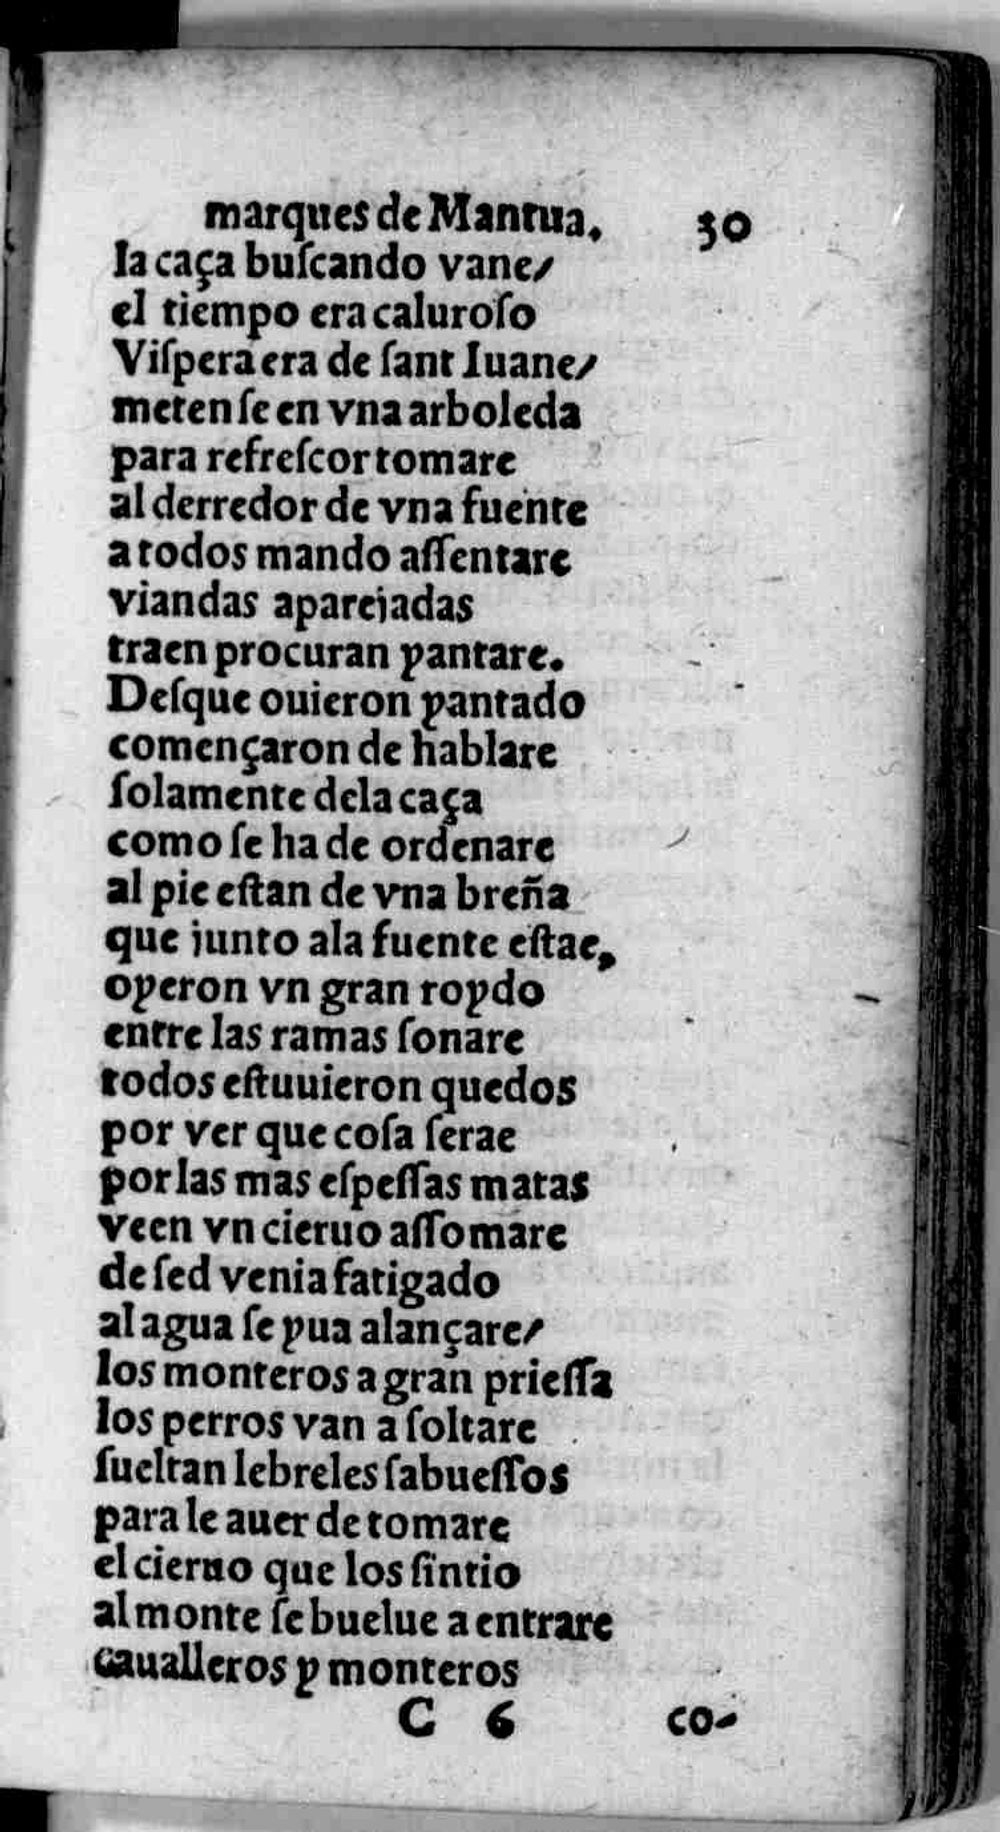 marques de Mantua. 30
la caça buſcando vane/
el tiempo era caluroſo
Viſpera era de ſant Iuane/
meten ſe en vna arboleda
para refreſcor tomare
al derredor de vna fuente
a todos mando aſſentare
viandas aparejadas
traen procuran yantare.
Deſque ouieron yantado
començaron de hablare
ſolamente dela caça
como ſe ha de ordenare
al pie eſtan de vna breña
que junto ala fuente eſtae,
oyeron vn gran roydo
entre las ramas ſonare
todos eſtuuieron quedos
por ver que coſa ſerae
por las mas eſpeſſas matas
veen vn cieruo aſſomare
de ſed venia fatigado
al agua ſe yua alançare/
los monteros a gran prieſſa
los perros van a ſoltare
ſueltan lebreles ſabueſſos
para le auer de tomare
el cieruo que los ſintio
al monte ſe buelue a entrare
caualleros y monteros
C 6 co-